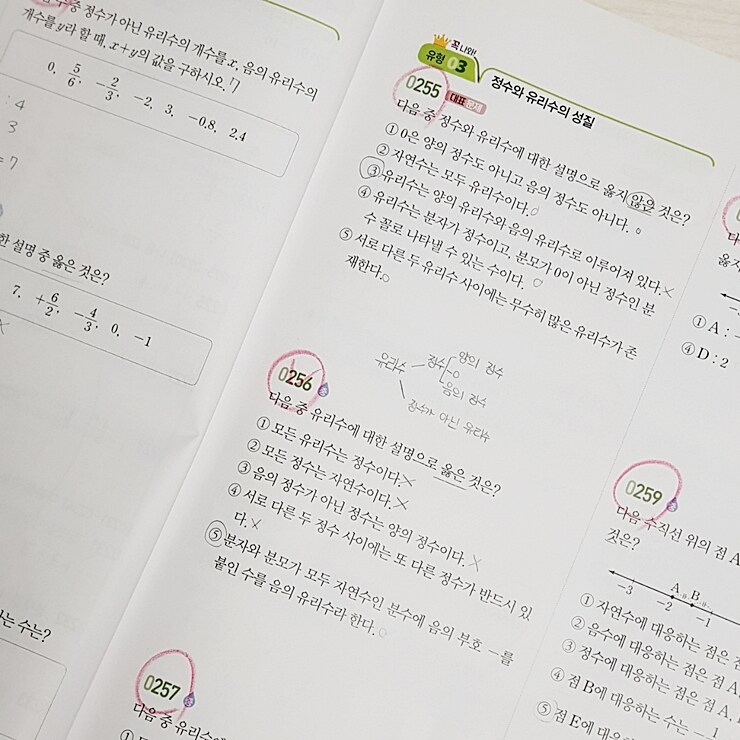 중 정수가 아닌 유리수의 개수를 x, 음의 유리수의
개수를 y라 할 때, x+y의 값을 구하시오. 7
0, 5/6, -2/3, -2, 3, -0.8, 2.4
: 4
3
=7
한 설명 중 옳은 것은?
7, +6/2, -4/3, 0, -1
는 수는?
꼭 나와!
유형 03 정수와 유리수의 성질
0255 대표문제
다음 중 정수와 유리수에 대한 설명으로 옳지 않은 것은?
① 0은 양의 정수도 아니고 음의 정수도 아니다. ○
② 자연수는 모두 유리수이다. ○
③ 유리수는 양의 유리수와 음의 유리수로 이루어져 있다. ×
④ 유리수는 분자가 정수이고, 분모가 0이 아닌 정수인 분
수 꼴로 나타낼 수 있는 수이다. ○
⑤ 서로 다른 두 유리수 사이에는 무수히 많은 유리수가 존
재한다. ○
유리수
정수
양의 정수
0
음의 정수
정수가 아닌 유리수
0256 중
다음 중 유리수에 대한 설명으로 옳은 것은?
① 모든 유리수는 정수이다. ×
② 모든 정수는 자연수이다. ×
③ 음의 정수가 아닌 정수는 양의 정수이다. ×
④ 서로 다른 두 정수 사이에는 또 다른 정수가 반드시 있
다. ×
⑤ 분자와 분모가 모두 자연수인 분수에 음의 부호 -를
붙인 수를 음의 유리수라 한다. ○
0257 중
다음 중 유리수에
① A : -
④ D : 2
0259 중
다음 수직선 위의 점 A
것은?
A B
-3 -2 -1
① 자연수에 대응하는 점은
② 음수에 대응하는 점은 점
③ 정수에 대응하는 점은 점 A,
④ 점 B에 대응하는 수는 -
⑤ 점 E에 대응하는